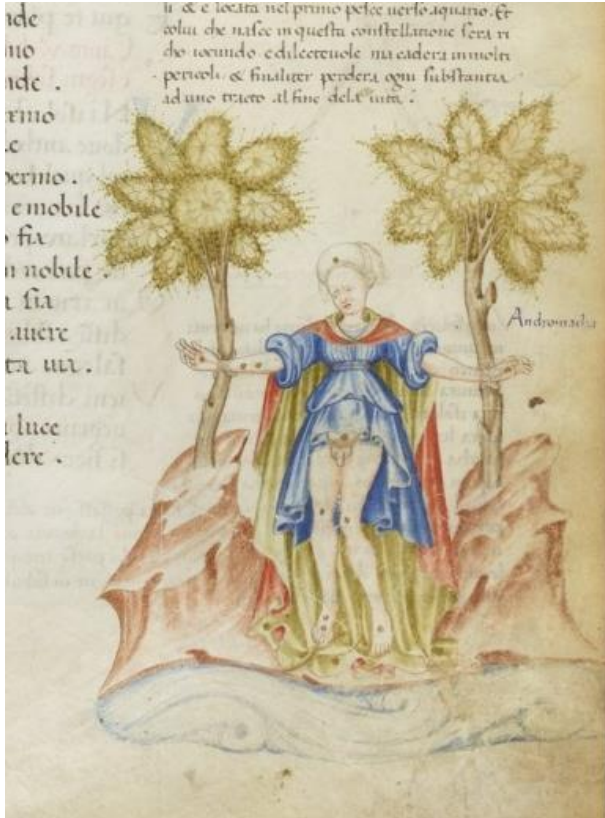 nde
no
nde .
ermo
permo .
e mobile
fia
nobile .
sia
auere
ta uia .
luce
dere .
li & e locata nel primo pesce uerso aquario. Et
colui che nasce in questa constellatione sera ri
cho iocundo e dilecteuole ma cadera in molti
pericoli & finaliter perdera ogni substantia
ad uno tracto al fine dela uita .
Andromacha